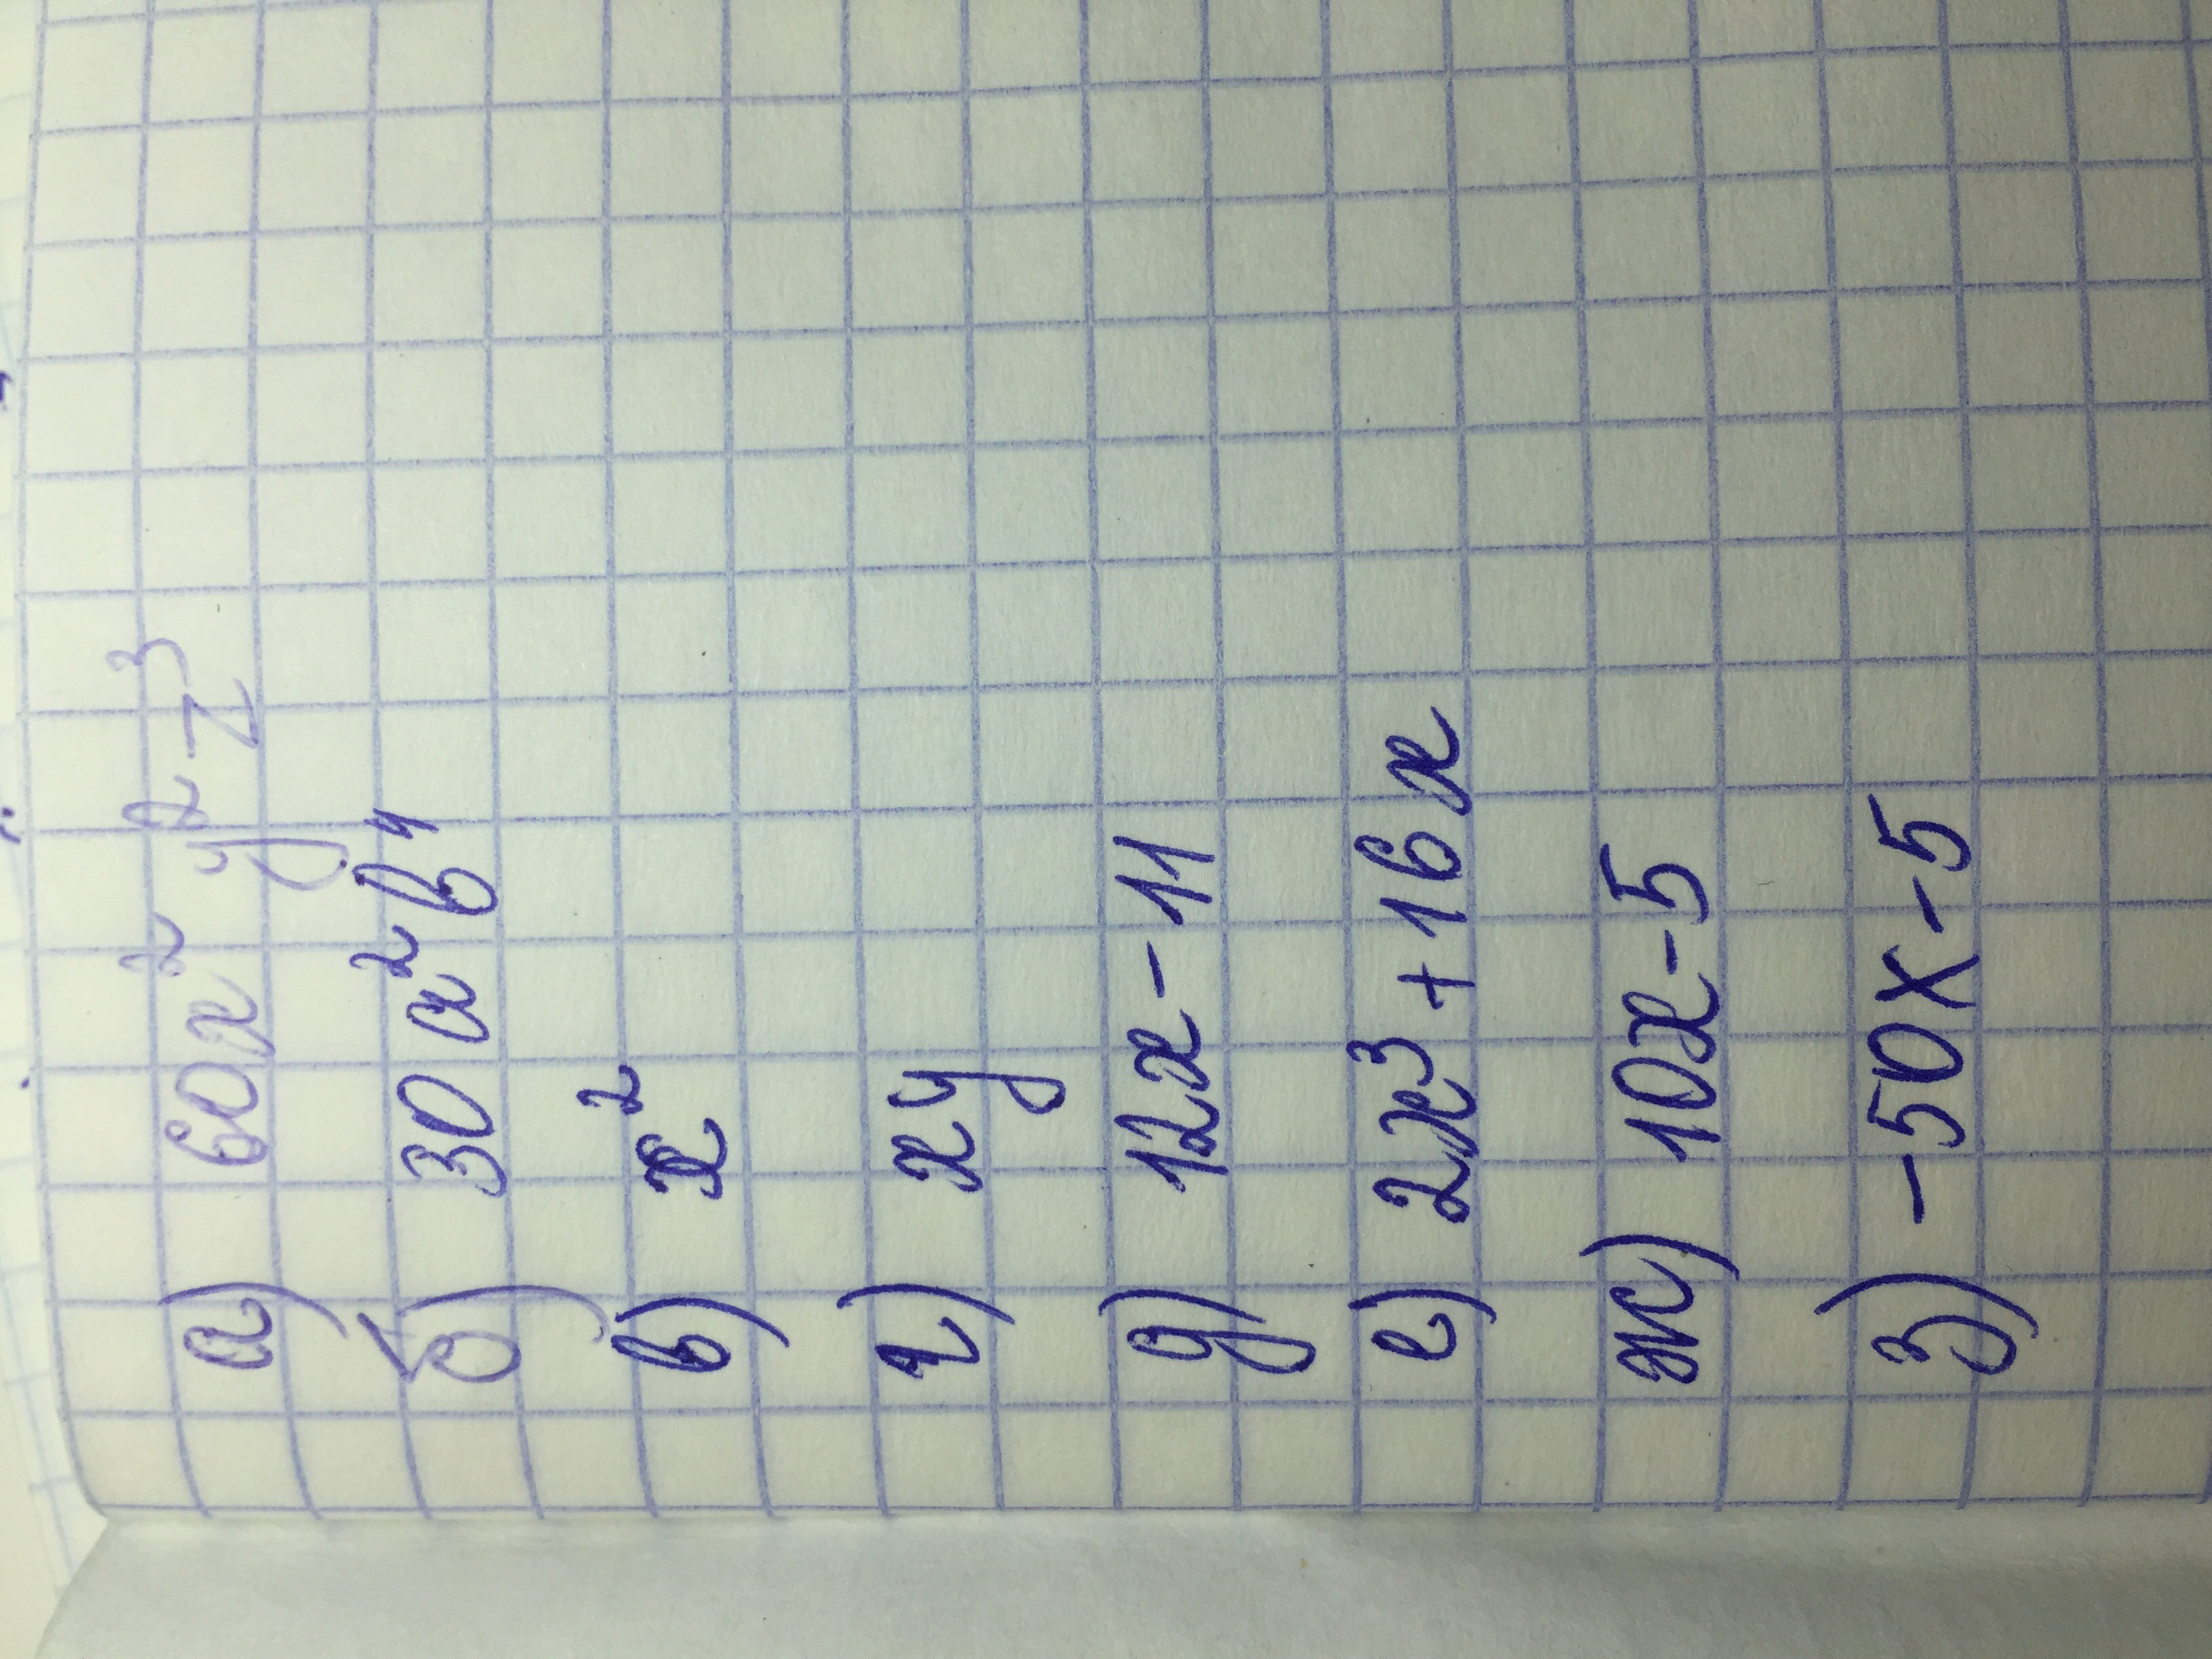 а) 60x² y² z³
б) 30 a² b⁴
в) x²
г) xy
д) 12x - 11
е) 2x³ + 16x
ж) 10x - 5
з) -50x - 5